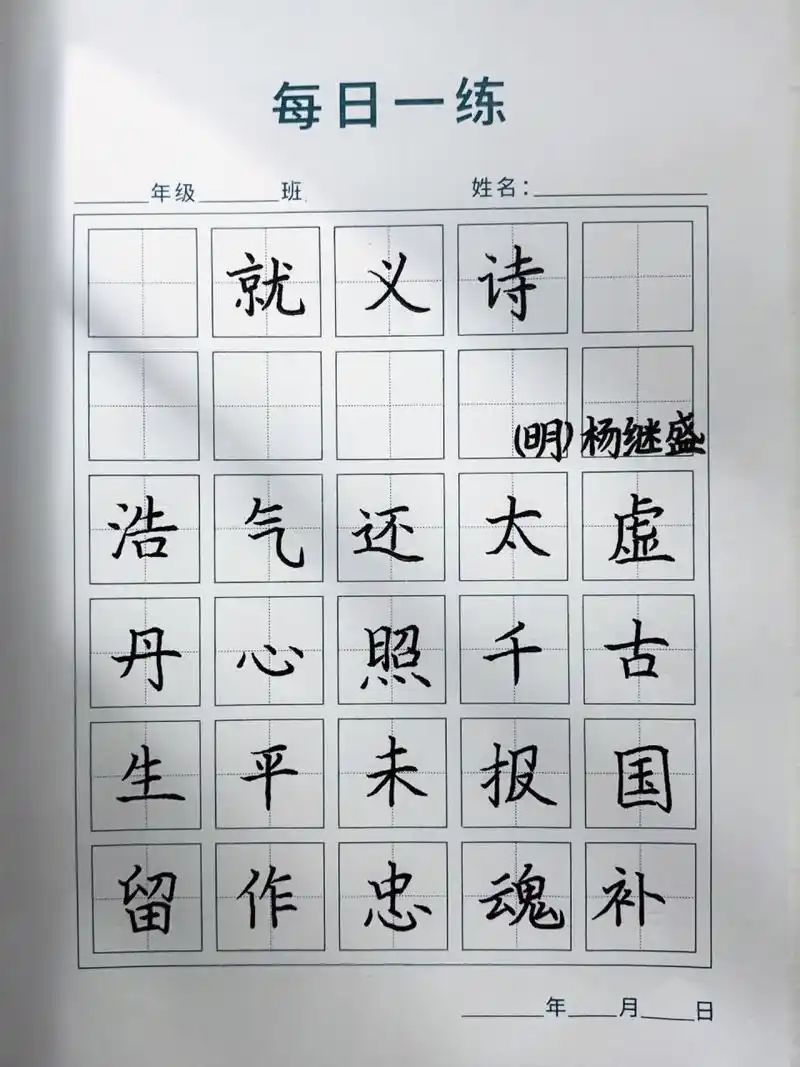 每日一练
____年级____班 姓名：________
就义诗
(明)杨继盛
浩气还太虚
丹心照千古
生平未报国
留作忠魂补
____年___月___日